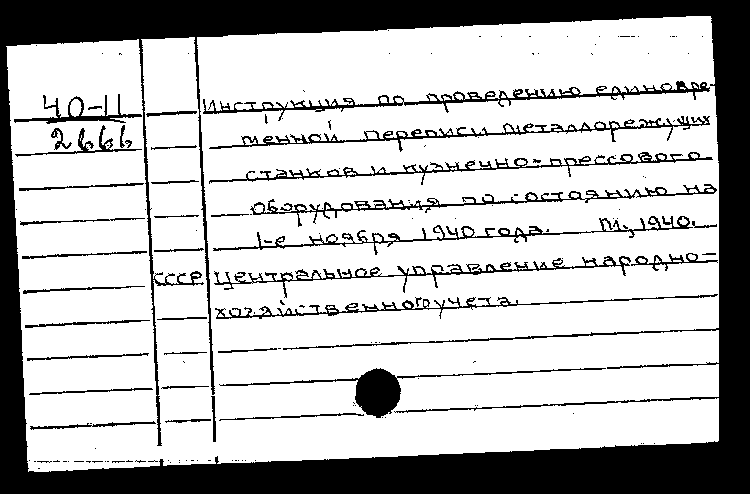 40-11
2666
Инструкция по проведению единовре-
менной переписи металлорежущих
станков и кузнечно-прессового
оборудования по состоянию на
1-е ноября 1940 года. М., 1940.
СССР Центральное управление народно-
хозяйственного учета.